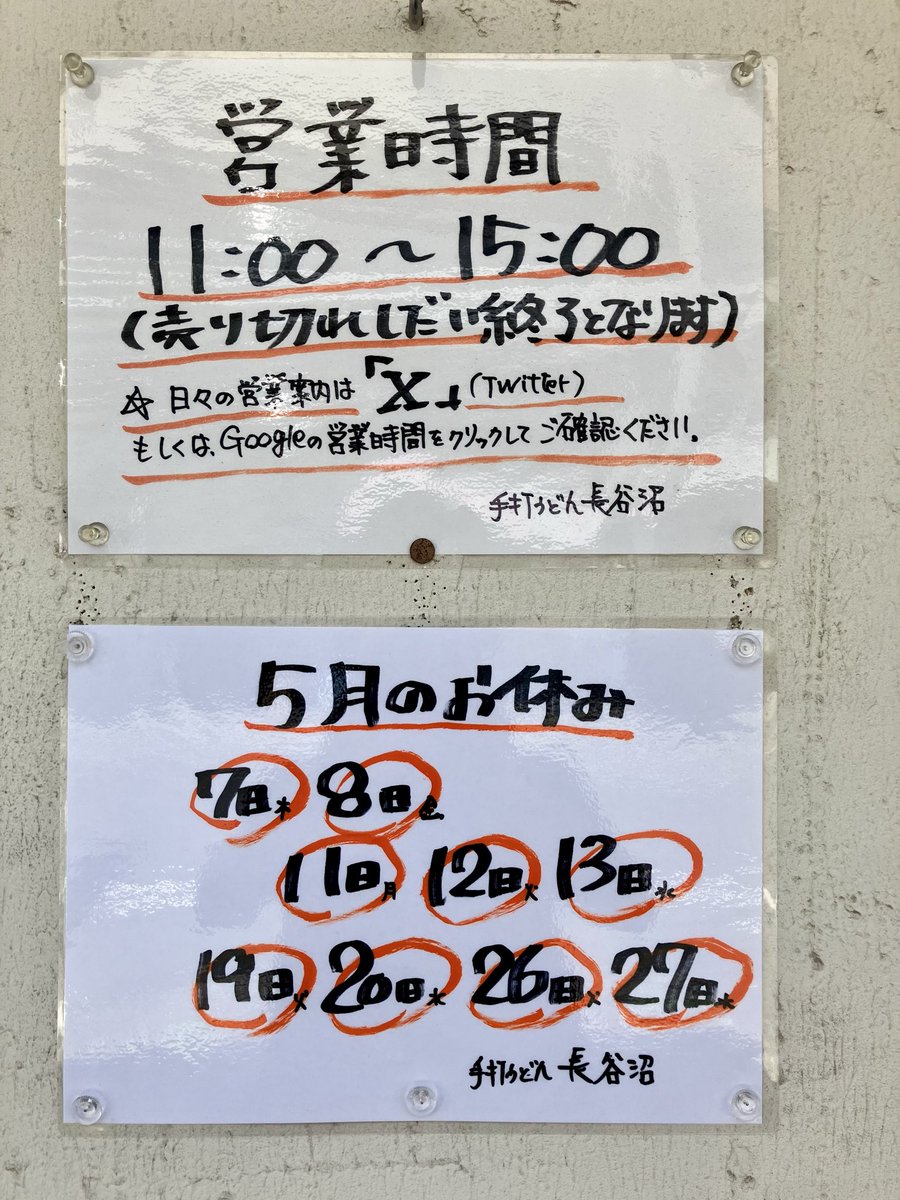 営業時間
11:00〜15:00
(売り切れしだい終了となります)
☆ 日々の営業案内は「X」(Twitter)
もしくは、Googleの営業時間をクリックしてご確認ください。
手打うどん 長谷沼
5月のお休み
7日木 8日金
11日月 12日火 13日水
19日火 20日水 26日火 27日水
手打うどん 長谷沼